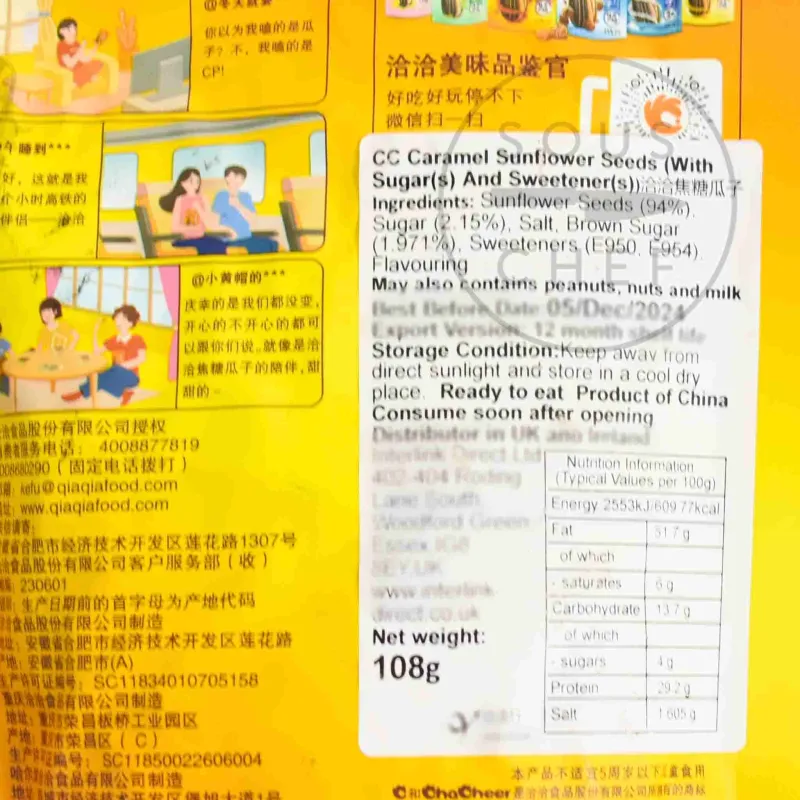 你以为我嗑的是瓜
子?不,我嗑的是
CP!
好,这就是我
个小时高铁的
伴侣——洽洽
@小黄帽的***
庆幸的是我们都没变,
开心的不开心的都可
以跟你们说。就像是洽
洽焦糖瓜子的陪伴,甜
甜的~
洽洽食品股份有限公司授权
消费者服务电话: 4008877819
(固定电话拨打)
kefu@qiaqiafood.com
www.qiaqiafood.com
合肥市经济技术开发区莲花路1307号
食品股份有限公司客户服务部(收)
230601
生产日期前的首字母为产地代码
食品股份有限公司制造
安徽省合肥市经济技术开发区莲花路
产地: 安徽省合肥市(A)
生产许可证编号: SC11834010705158
重庆洽洽食品有限公司制造
地址: 重庆市荣昌板桥工业园区
产地: 重庆市荣昌区(C)
生产许可证编号: SC11850022606004
洽洽食品有限公司制造
洽洽美味品鉴官
好吃好玩停不下
微信扫一扫
SOUS
CHEF
CC Caramel Sunflower Seeds (With
Sugar(s) And Sweetener(s))洽洽焦糖瓜子
Ingredients: Sunflower Seeds (94%),
Sugar (2.15%), Salt, Brown Sugar
(1.971%), Sweeteners (E950, E954)
Flavouring
May also contains peanuts, nuts and milk
Best Before Date 05/Dec/2024
Export Version: 12 month shelf life
Storage Condition:Keep away from
direct sunlight and store in a cool dry
place. Ready to eat Product of China
Consume soon after opening
Distributor in UK and Ireland
Interlink Direct Ltd
402-404 Roding
Lane South
Woodford Green
Essex IG8
8EY,UK
www.interlink
direct.co.uk
Net weight:
108g
Nutrition Information
(Typical Values per 100g)
Energy 2553kJ/609.77kcal
Fat 51.7 g
of which
- saturates 6 g
Carbohydrate 13.7 g
of which
- sugars 4 g
Protein 29.2 g
Salt 1.605 g
本产品不适宜5周岁以下儿童食用
和ChaCheer是洽洽食品股份有限公司所有的商标